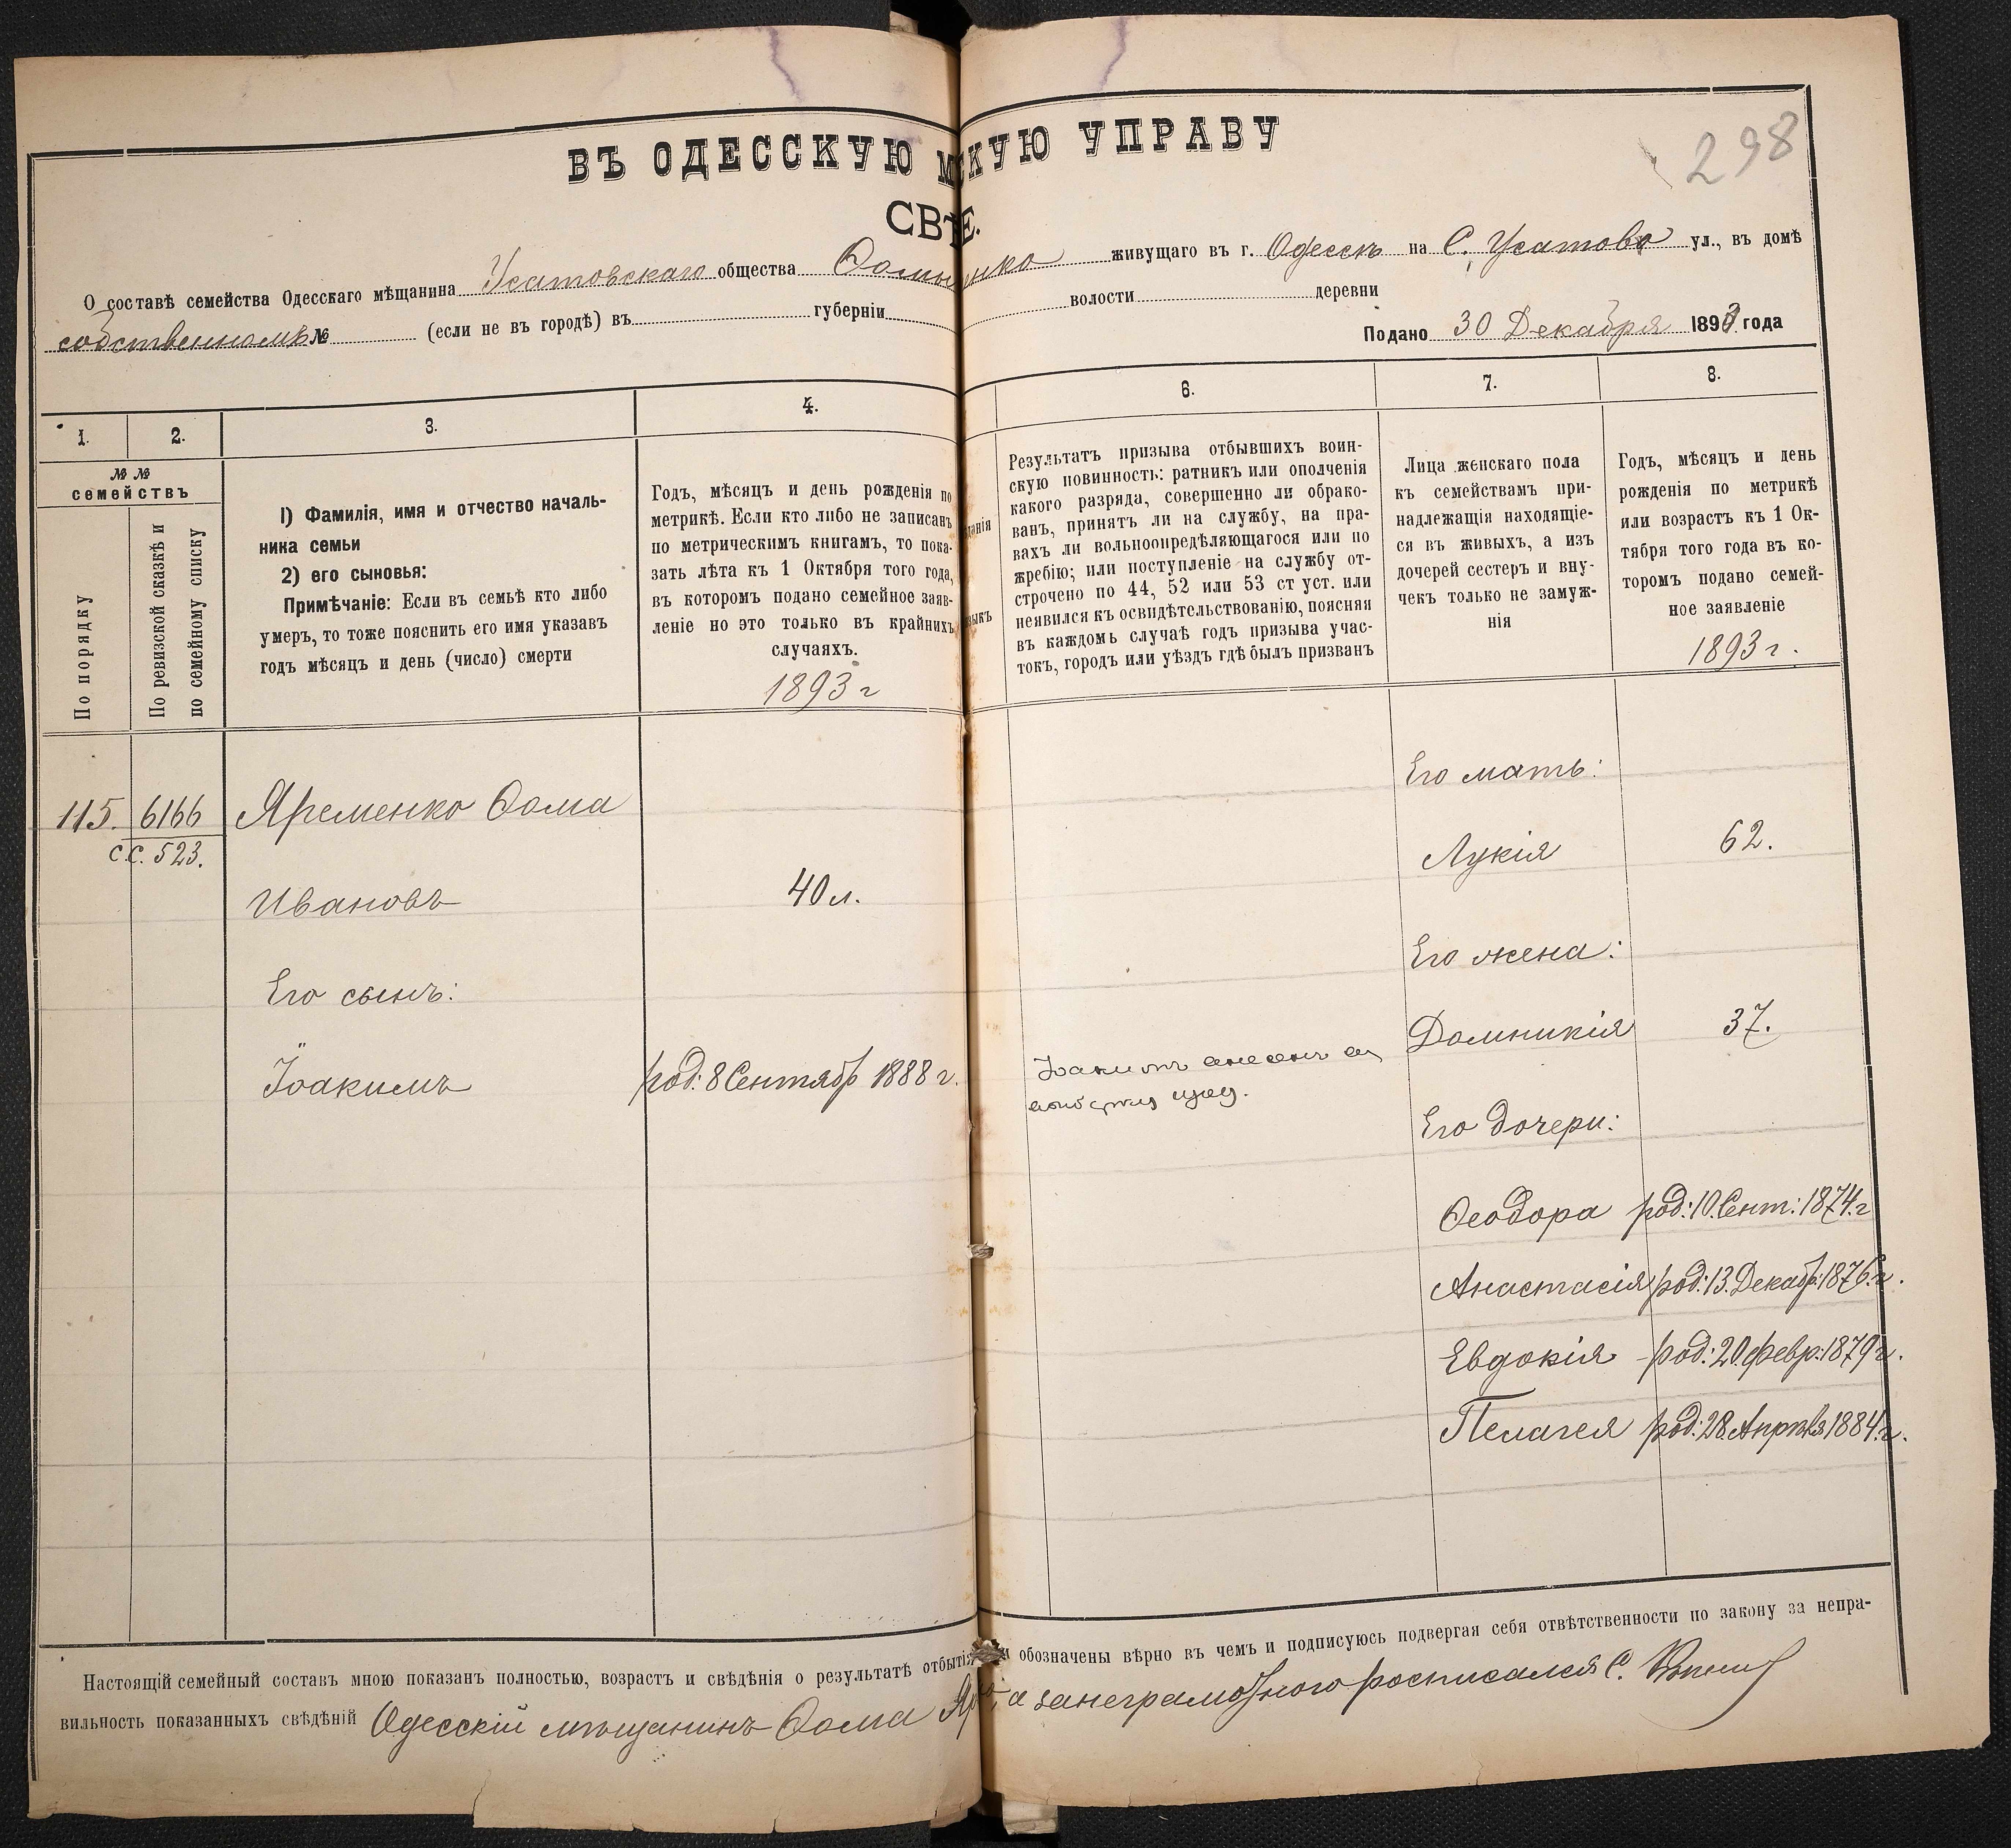 298
ВЪ ОДЕССКУЮ М СКУЮ УПРАВУ
СВѢ Е.
О составѣ семейства Одесскаго мѣщанина Усатовскаго общества живущаго въ г. Одессѣ на С. Усатово ул., въ домѣ
собственномъ № (если не въ городѣ) въ губерніи волости деревни
Подано 30 Декабря 1893 года
1.
2.
3.
4.
6.
7.
8.
№ №
семействъ
По порядку
По ревизской сказкѣ и
по семейному списку
1) Фамилія, имя и отчество началь-
ника семьи
2) его сыновья:
Примѣчаніе: Если въ семьѣ кто либо
умеръ, то тоже пояснить его имя указавъ
годъ мѣсяцъ и день (число) смерти
Годъ, мѣсяцъ и день рожденія по
метрикѣ. Если кто либо не записанъ
по метрическимъ книгамъ, то пока-
зать лѣта къ 1 Октября того года,
въ которомъ подано семейное заяв-
леніе но это только въ крайнихъ
случаяхъ.
1893 г
Результатъ призыва отбывшихъ воин-
скую повинность: ратникъ или ополченія
какого разряда, совершенно ли обрако-
ванъ, принятъ ли на службу, на пра-
вахъ ли вольноопредѣляющагося или по
жребію; или поступленіе на службу от-
строчено по 44, 52 или 53 ст уст. или
неявился къ освидѣтельствованію, поясняя
въ каждомъ случаѣ годъ призыва учас-
токъ, городъ или уѣздъ гдѣ былъ призванъ
Лица женскаго пола
къ семействамъ при-
надлежащія находящіе-
ся въ живыхъ, а изъ
дочерей сестеръ и вну-
чекъ только не замуж-
нія
Годъ, мѣсяцъ и день
рожденія по метрикѣ
или возрастъ къ 1 Ок-
тября того года въ ко-
торомъ подано семей-
ное заявленіе
1893 г.
115. 6166 Яременко Ѳома
с.с. 523.
Ивановъ 40 л.
Его сынъ:
Іоакимъ род: 8 Сентябр 1888 г.
Іоакимъ
Его мать:
Лукія 62.
Его жена:
Домникія 37.
Его дочери:
Ѳеодора род: 10. Сент: 1874. г
Анастасія род: 13. Декабр: 1876. г.
Евдокія род: 20 февр: 1879 г.
Пелагея род: 28. Апрѣля 1884. г.
Настоящій семейный составъ мною показанъ полностью, возрастъ и свѣдѣнія о результатѣ отбытія и обозначены вѣрно въ чемъ и подписуюсь подвергая себя отвѣтственности по закону за непра-
вильность показанныхъ свѣдѣній Одесскій мѣщанинъ Ѳома а за неграмотного росписался С.